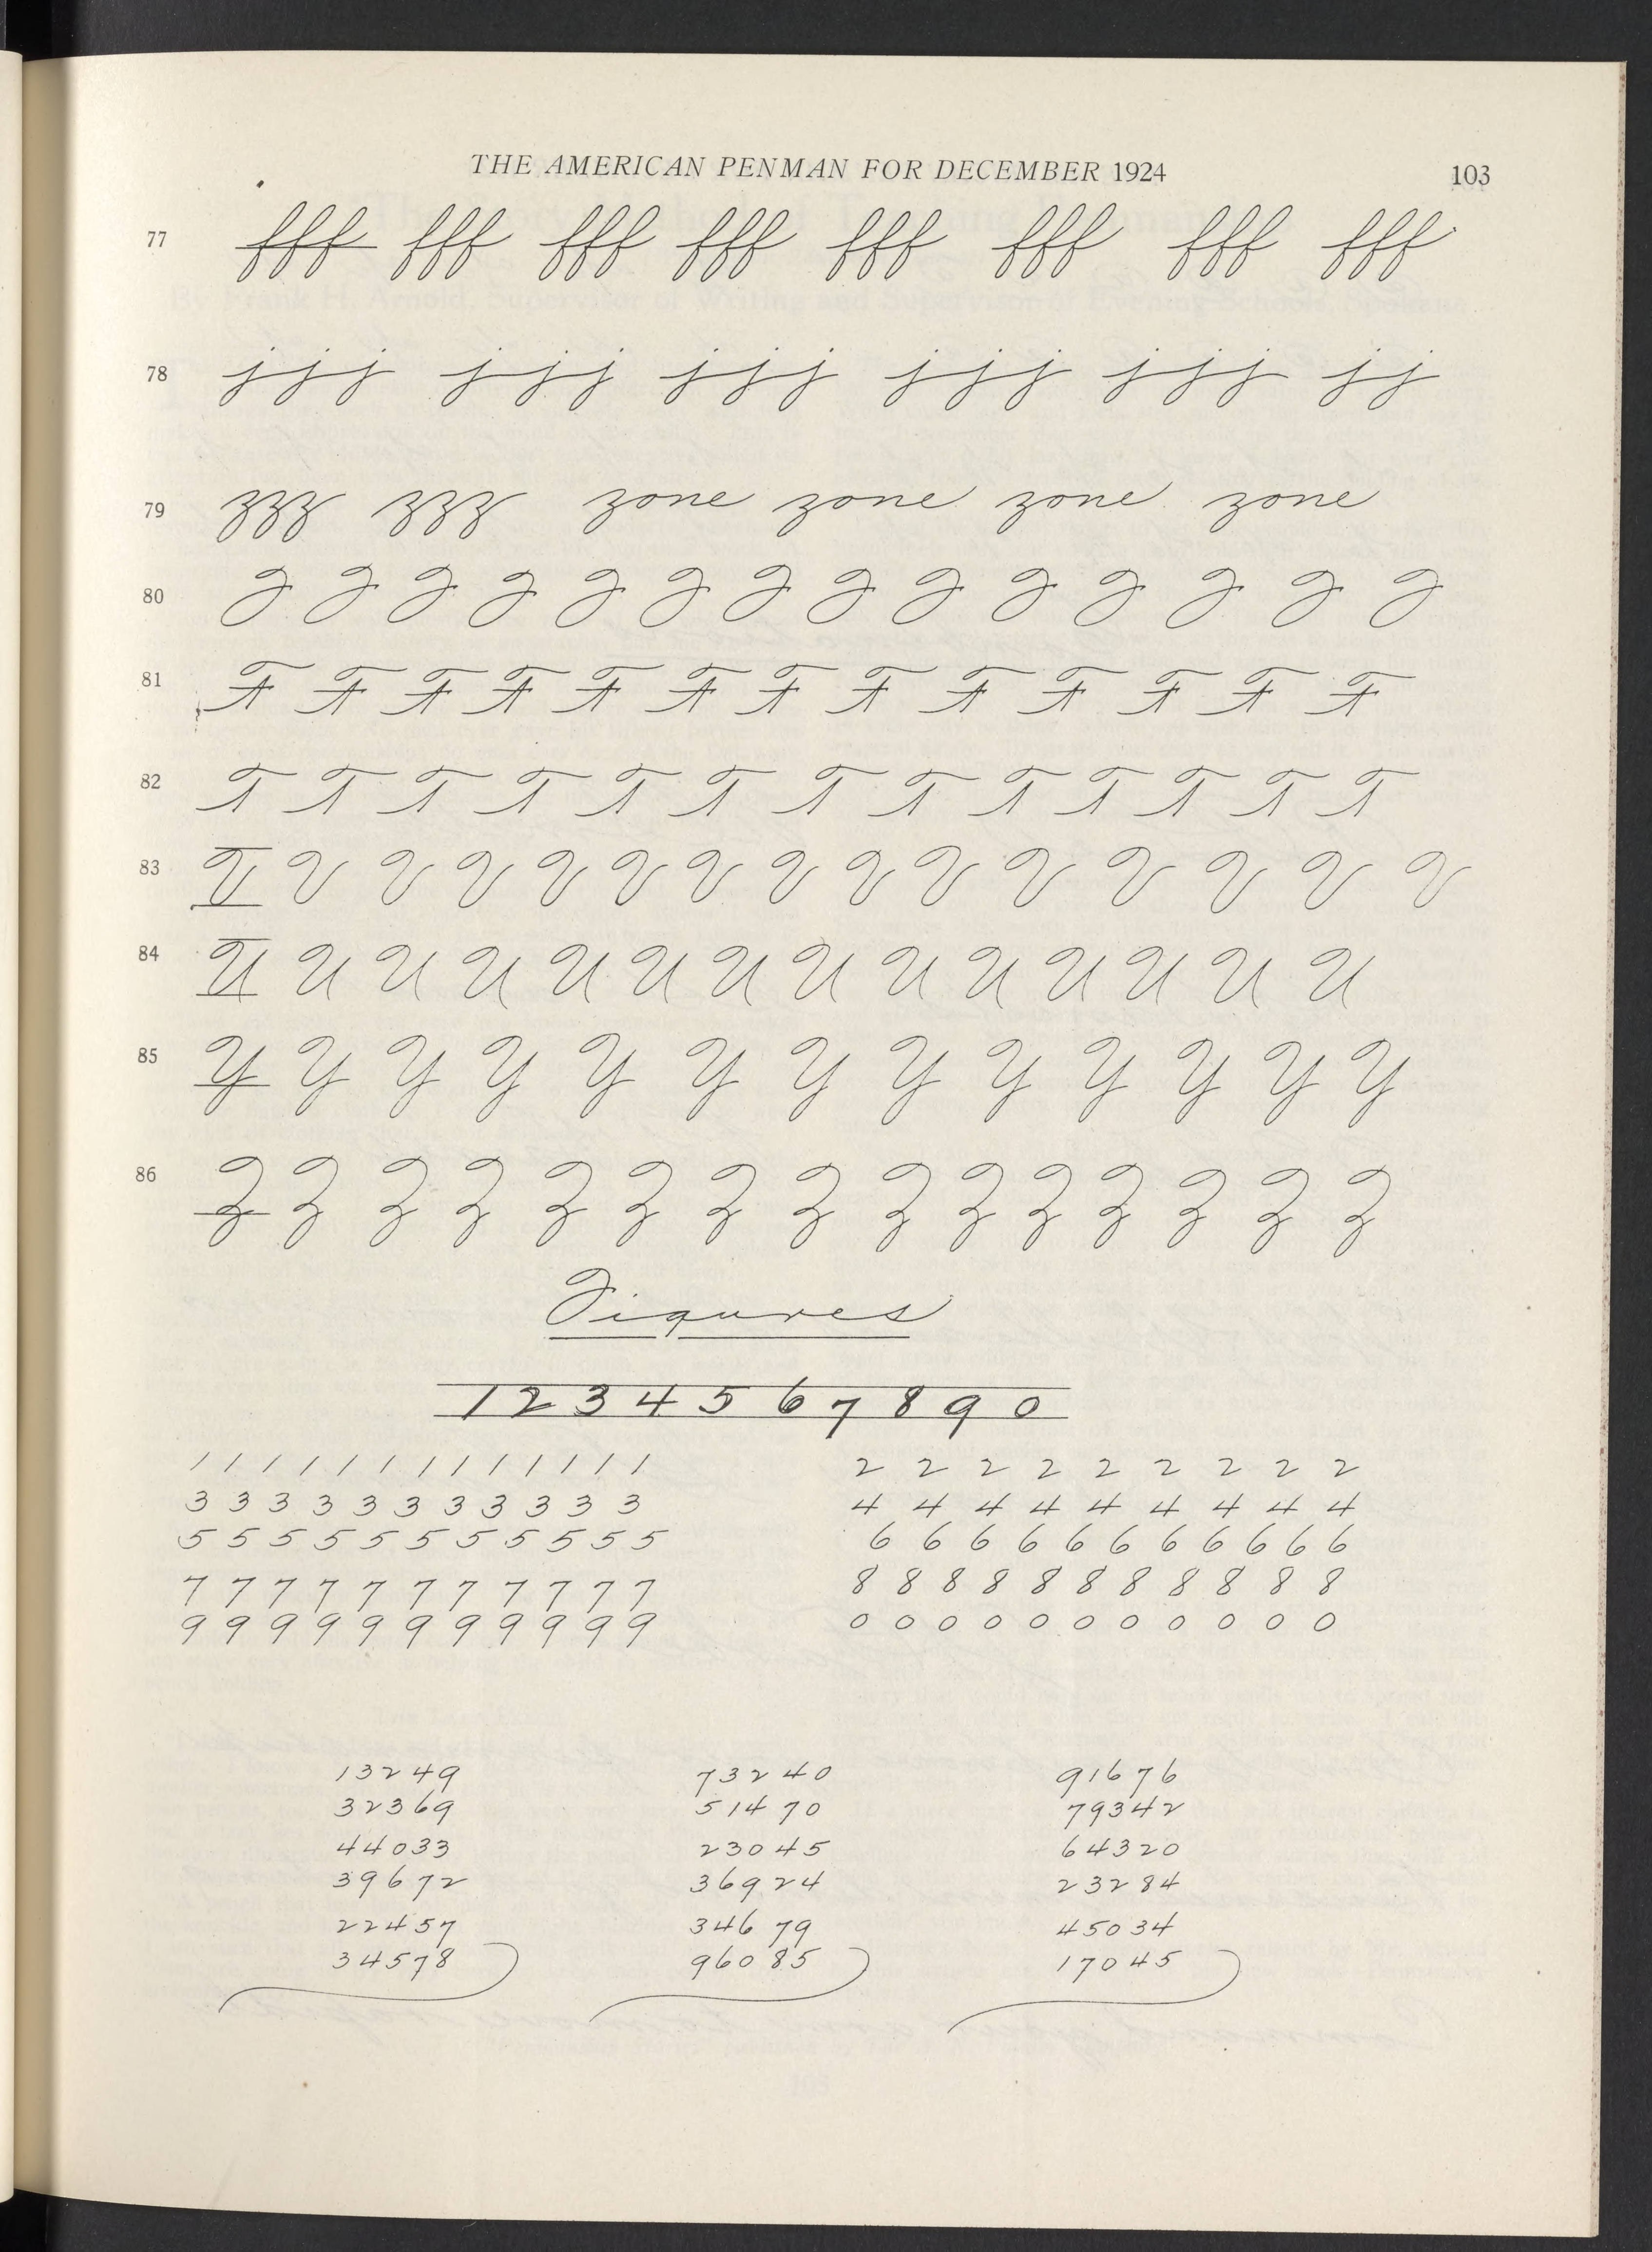 THE AMERICAN PENMAN FOR DECEMBER 1924 103
77 fff fff fff fff fff fff fff fff
78 jjj jjj jjj jjj jjj jj
79 zzz zzz zone zone zone zone
80 F F F F F F F F F F F F F F
81 F F F F F F F F F F F F F
82 T T T T T T T T T T T T T
83 V V V V V V V V V V V V V V V
84 U U U U U U U U U U U U U U
85 Y Y Y Y Y Y Y Y Y Y Y Y Y
86 Z Z Z Z Z Z Z Z Z Z Z Z Z Z Z
Figures
1 2 3 4 5 6 7 8 9 0
1 1 1 1 1 1 1 1 1 1 1 1 1 2 2 2 2 2 2 2 2 2
3 3 3 3 3 3 3 3 3 3 3 4 4 4 4 4 4 4 4 4
5 5 5 5 5 5 5 5 5 5 5 6 6 6 6 6 6 6 6 6 6 6
7 7 7 7 7 7 7 7 7 7 7 8 8 8 8 8 8 8 8 8 8 8
9 9 9 9 9 9 9 9 9 9 9 0 0 0 0 0 0 0 0 0 0 0
13249 73240 91676
32369 51470 79342
44033 23045 64320
39672 36924 23284
22457 34679 45034
34578 96085 17045